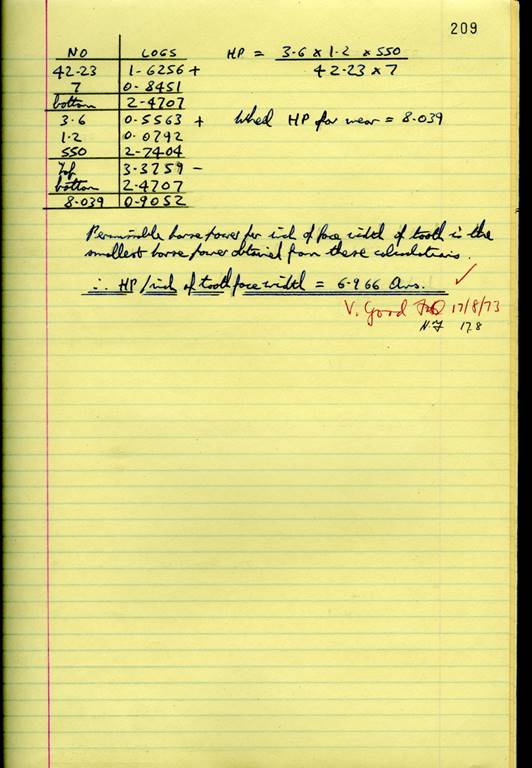 209
NO LOGS HP = 3.6 x 1.2 x 550
42.23 1.6256 + 42.23 x 7
7 0.8451
bottom 2.4707
3.6 0.5563 + Wheel HP for wear = 8.039
1.2 0.0792
550 2.7404
Top 3.3759 -
bottom 2.4707
8.039 0.9052
Permissible horse power per inch of face width of tooth is the
smallest horse power obtained from these calculations.
∴ HP/inch of tooth face width = 6.966 Ans. ✓
V. Good 17/8/73
N.F 17.8